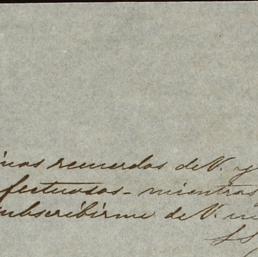 inos recuerdos de V. y
fectuosos - mientras
subscribirme de V. 
SS